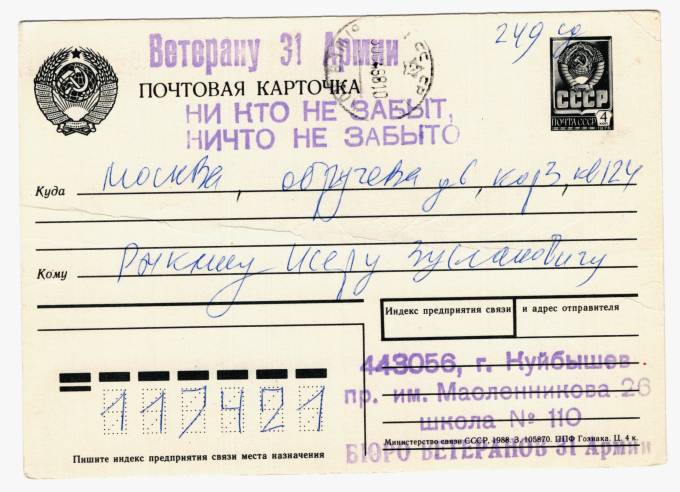 Ветерану 31 Армии
249
ПОЧТОВАЯ КАРТОЧКА
СССР
ПОЧТА СССР 4
НИ КТО НЕ ЗАБЫТ,
НИЧТО НЕ ЗАБЫТО
Куда Москва, Обручева кор3, кв124
Кому Рыкману Исеру Зуслановичу
Индекс предприятия связи и адрес отправителя
443056, г. Куйбышев
пр. им. Масленникова 26
школа № 110
Министерство связи СССР, 1988. З. 105870. ППФ Гознака. Ц. 4 к.
БЮРО ВЕТЕРАНОВ 31 Армии
117421
Пишите индекс предприятия связи места назначения